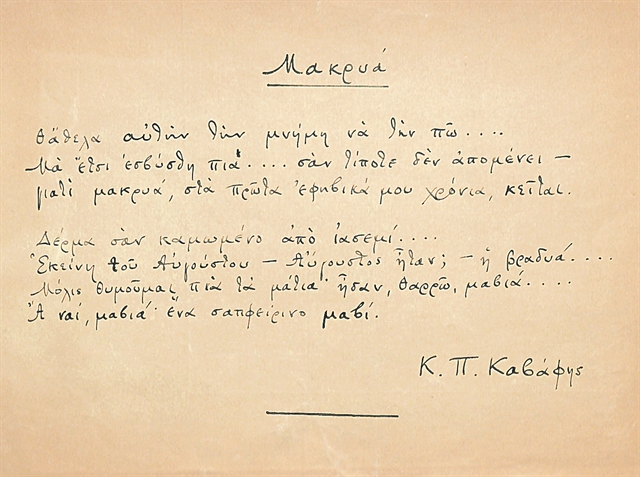 Μακρυά
Θάθελα αὐτὴν τὴν μνήμη νὰ τὴν πῶ....
Μὰ ἔτσι ἐσβύσθη πιὰ.... σὰν τίποτε δὲν ἀπομένει —
γιατὶ μακρυά, στὰ πρῶτα ἐφηβικά μου χρόνια, κεῖται.
Δέρμα σὰν καμωμένο ἀπὸ ἰασεμί....
Ἐκείνη τοῦ Αὐγούστου — Αὔγουστος ἦταν; — ἡ βραδυά....
Μόλις θυμοῦμαι πιὰ τὰ μάτια· ἦσαν, θαρρῶ, μαβιά....
Ἆ ναί, μαβιά· ἕνα σαπφείρινο μαβί.
Κ. Π. Καβάφης